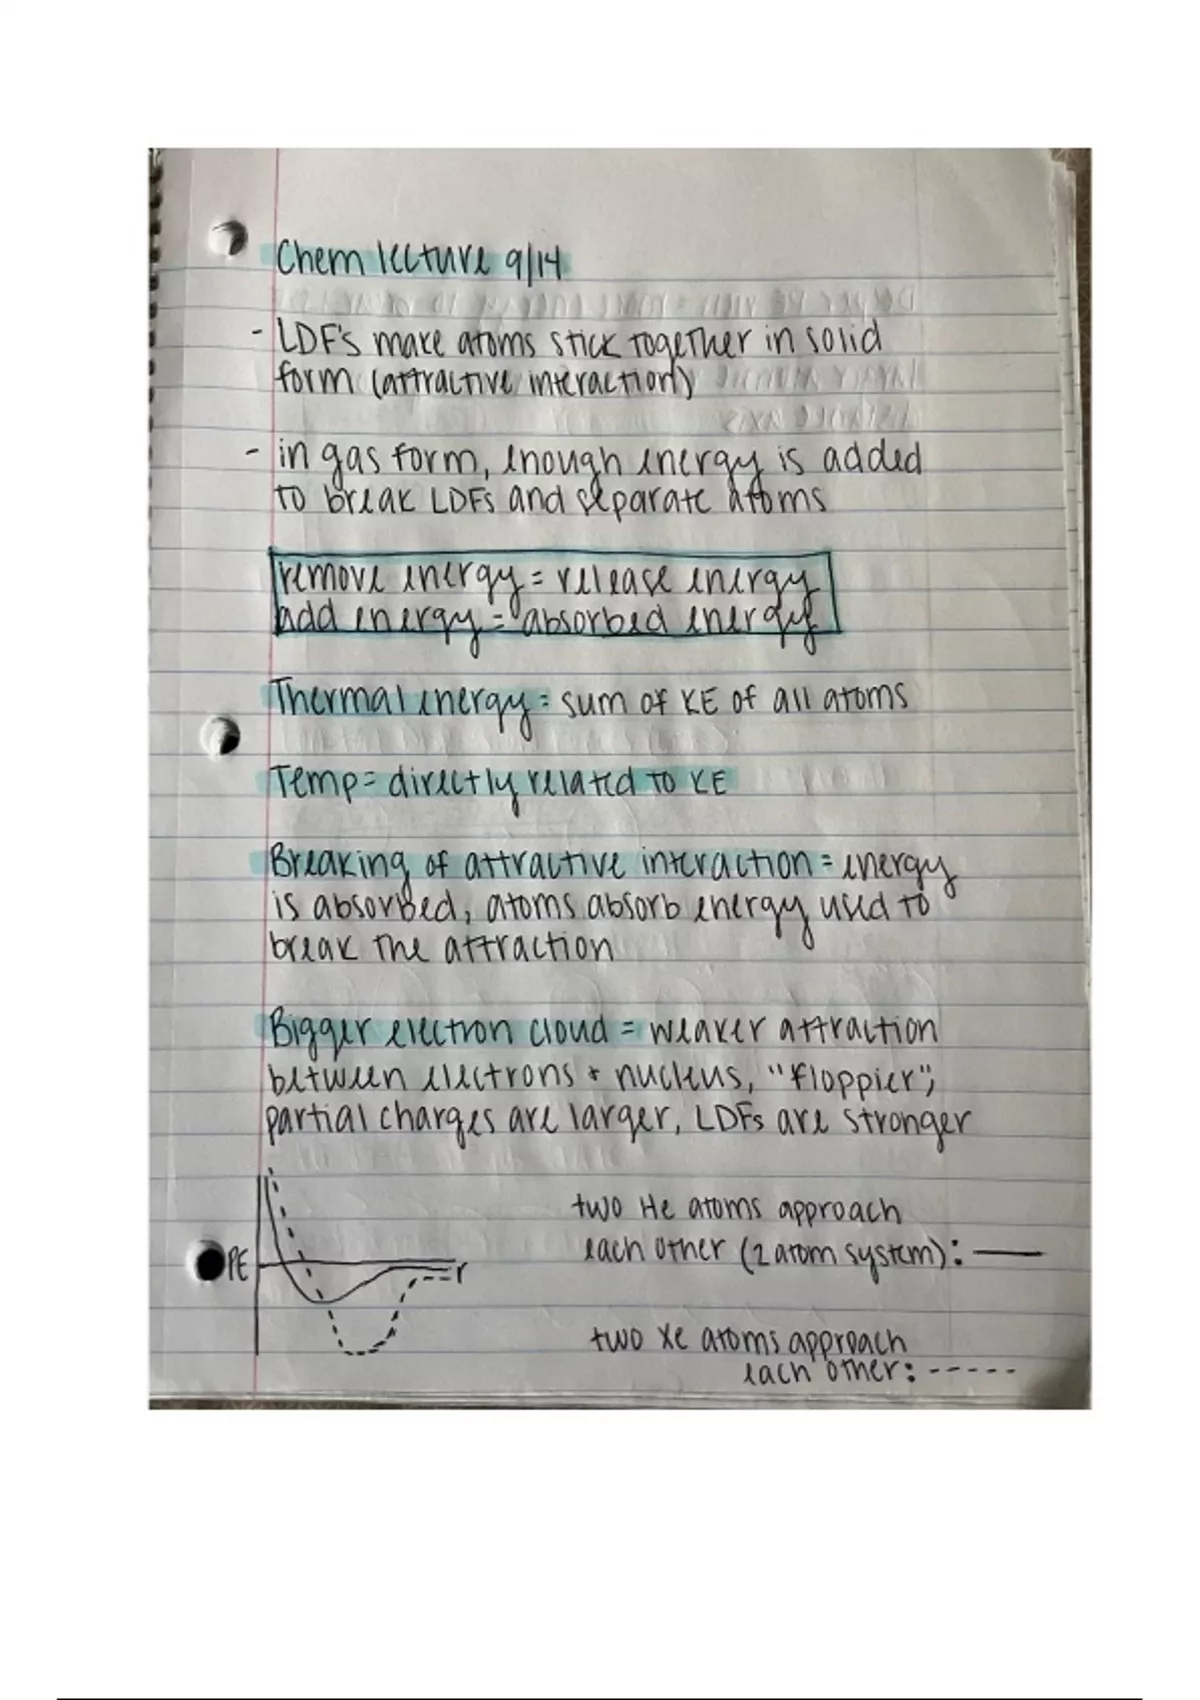 Chem lecture 9/14
- LDF's make atoms stick together in solid
form (attractive interaction)
- in gas form, enough energy is added
to break LDFs and separate atoms
remove energy = release energy
add energy = absorbed energy
Thermal energy = sum of KE of all atoms
Temp = directly related to KE
Breaking of attractive interaction = energy
is absorbed, atoms absorb energy used to
break the attraction
Bigger electron cloud = weaker attraction
between electrons + nucleus, "floppier";
partial charges are larger, LDFs are stronger
two He atoms approach
each other (2 atom system): ——
PE
r
two Xe atoms approach
each other: -----